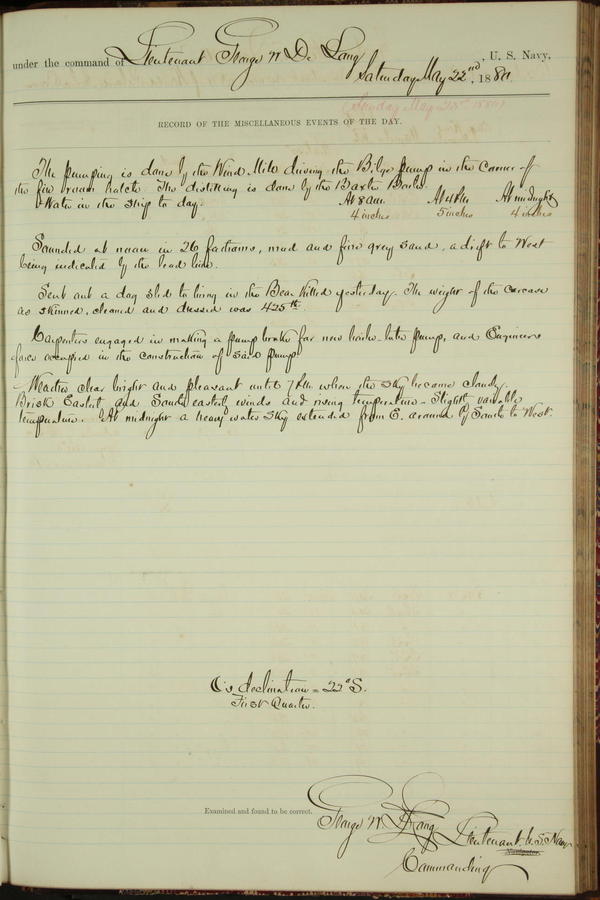 under the command of Lieutenant George W. De Long, U. S. Navy,
Saturday May 22nd, 1880
RECORD OF THE MISCELLANEOUS EVENTS OF THE DAY.
The pumping is done by the Wind Mill driving the Bilge pump in the Corner of
the fire room hatch. The distilling is done by the Baxter Boiler.
Water in the ship to day. At 8 am. At 4 pm. At midnight
4 inches 5 inches 4 inches
Sounded at noon in 26 fathoms, mud and fine grey sand, a drift to West
being indicated by the lead line.
Sent out a dog sled to bring in the Bear killed yesterday. The weight of the carcase
as skinned, cleaned and dressed was 425 lb
Carpenters engaged in making a pump brake for new bilge pump, and Engineers
force occupied in the construction of said pump
Weather clear bright and pleasant until 7 pm when the sky became cloudy.
Brisk Easterly and South easterly winds and rising temperature - Slightly variable
temperature. At midnight a heavy water sky extended from E. around by South to West.
☾'s declination = 22° S.
First Quarter.
Examined and found to be correct.
George W. De Long Lieutenant U. S. Navy
Commanding